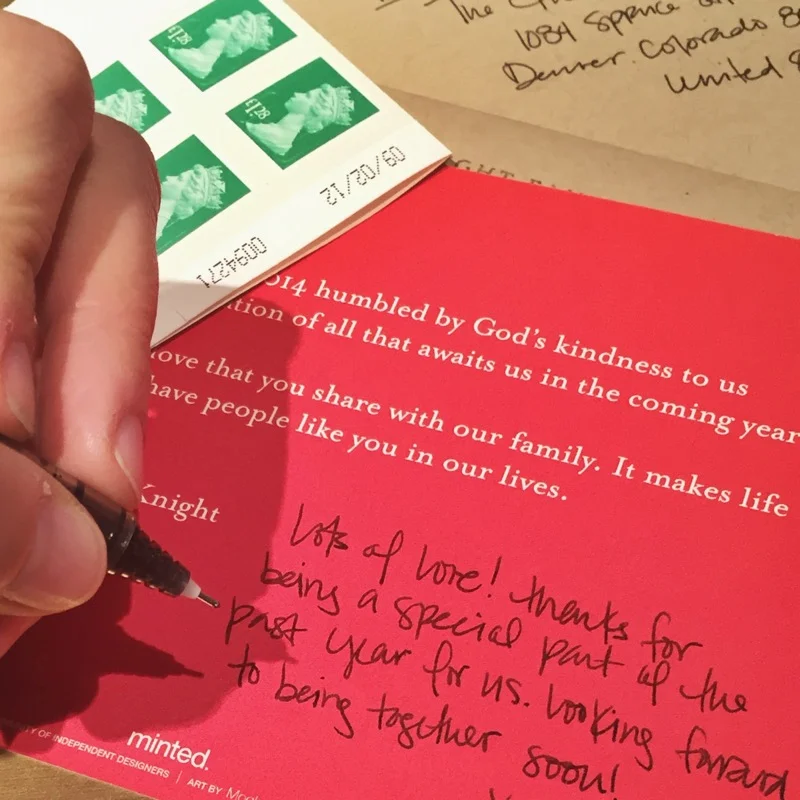 The
1084 Spruce
Denver. Colorado
United
£1.28
£1.28
09/02/12
0094271
014 humbled by God's kindness to us
tion of all that awaits us in the coming year
love that you share with our family. It makes life
have people like you in our lives.
Knight
lots of love! thanks for
being a special part of the
past year for us. looking forward
to being together soon!
minted.
OF INDEPENDENT DESIGNERS | ART BY